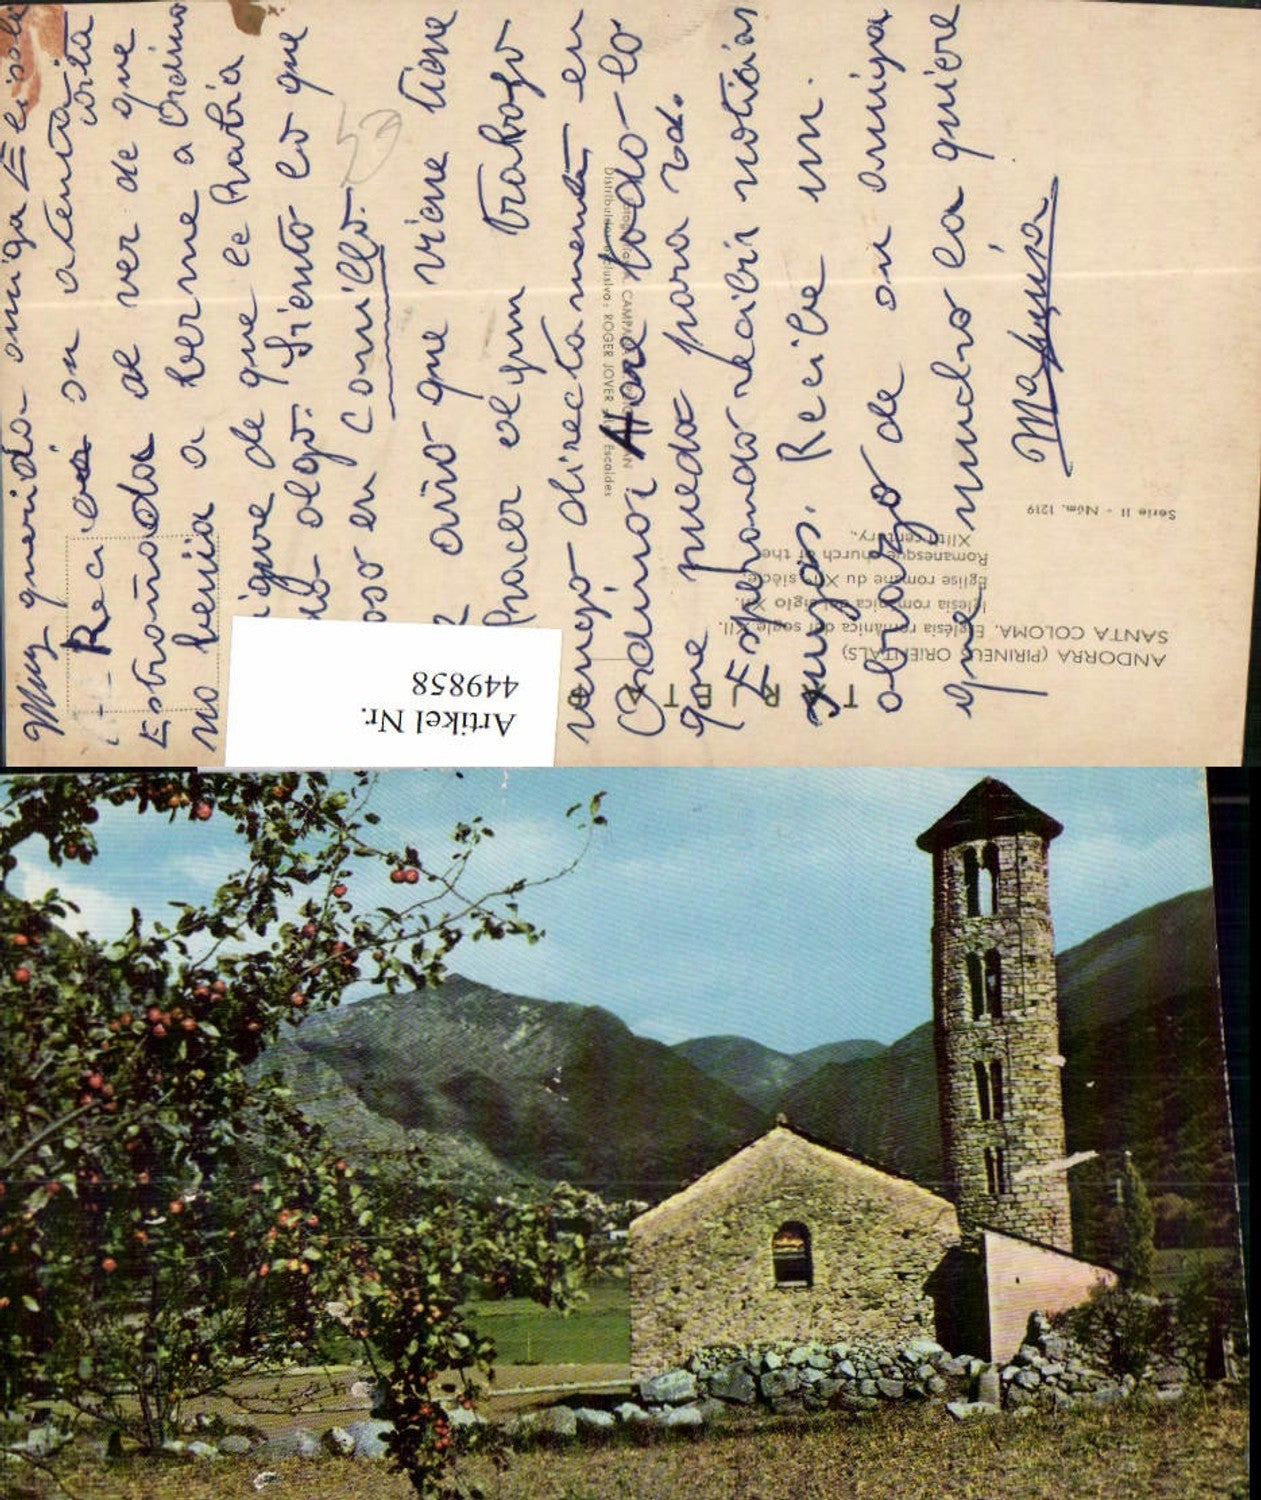 Muy querida amiga Elisa
Recibí su atenta carta
Estrañada al ver de que
no venia a verme a Ordino
de que le habia
algo. Siento lo que
en Comillo.
año que viene tiene
hacer algun trabajo
vengo directamente en
Ordino Hare todo lo
que pueda para vd.
Esperando recibir noticias
suyas. Recibe un
abrazo de su amiga
que mucho la quiere
ANDORRA (PIRINEUS ORIENTALS)
SANTA COLOMA. Església romànica del segle XII.
Iglesia románica del siglo XII.
Église romane du XIIe siècle.
Romanesque church of the
XIIth century.
Serie II - Núm. 1219
CAMPAÑA
Distribuidor exclusivo: ROGER JOVER Escaldes
TARJETA
Artikel Nr.
449858